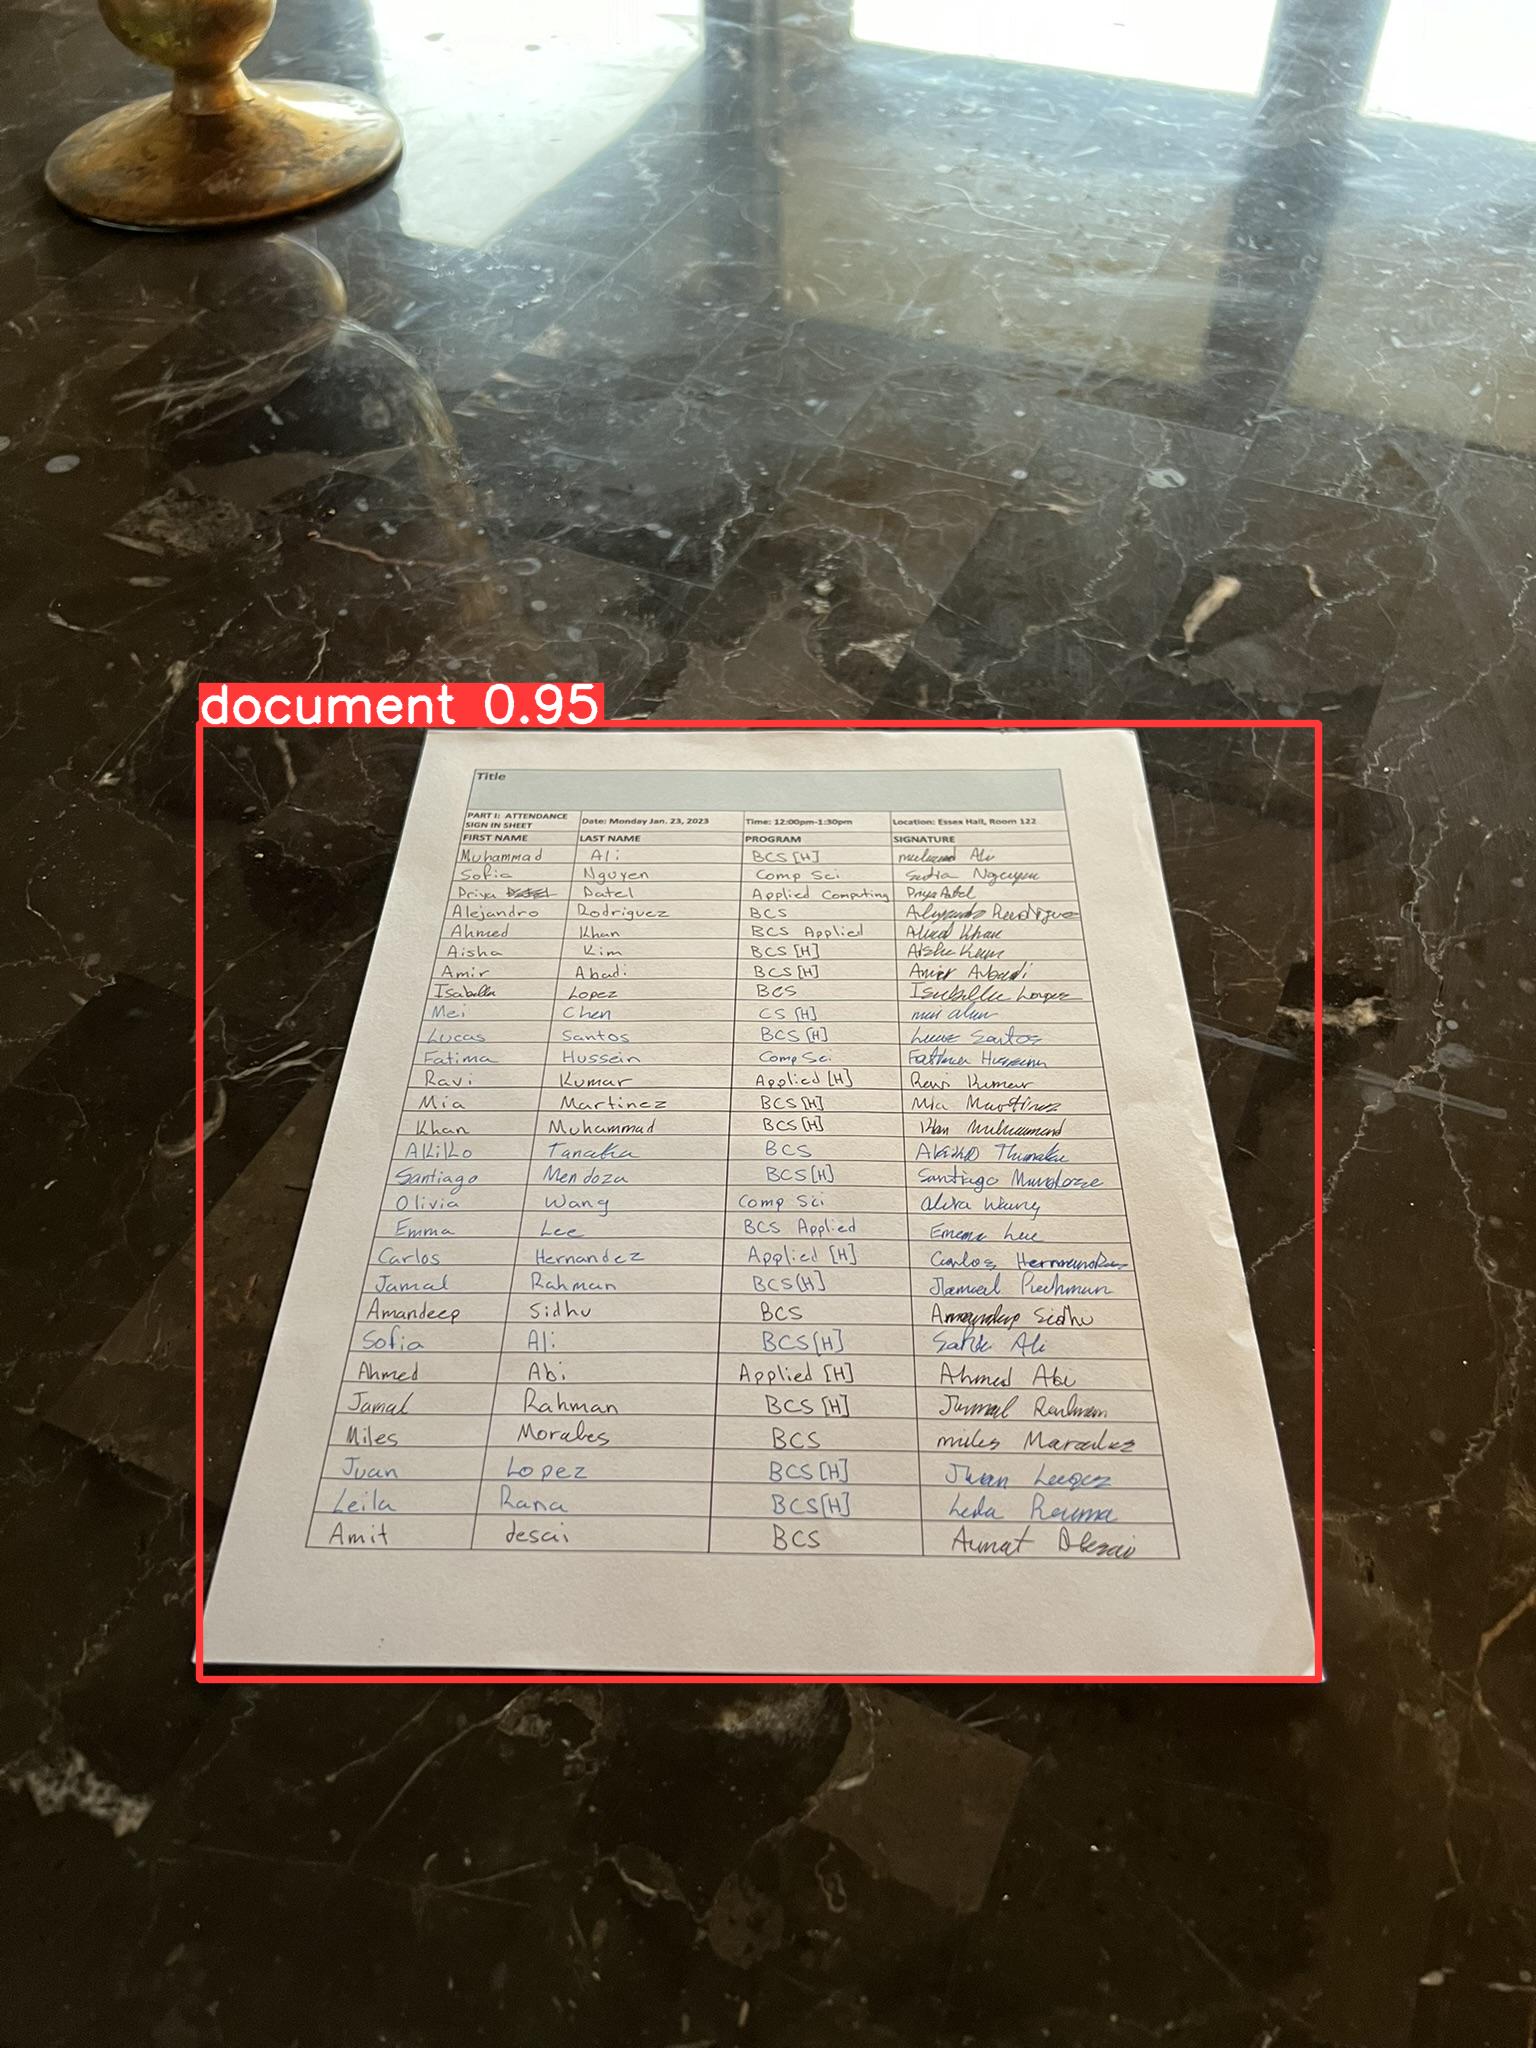 document 0.95
Title
PART I: ATTENDANCE SIGN IN SHEET Date: Monday Jan. 23, 2023 Time: 12:00pm-1:30pm Location: Essex Hall, Room 122
FIRST NAME LAST NAME PROGRAM SIGNATURE
Muhammad Ali BCS [H] Ali
Sofia Nguyen Comp Sci Nguyen
Priya Patel Applied Computing Priya Patel
Alejandro Rodriguez BCS Rodriguez
Ahmed Khan BCS Applied Khan
Aisha Kim BCS [H] Aisha
Amir Abadi BCS [H] Amir Abadi
Isabella Lopez BCS Isabella Lopez
Mei Chen CS [H]
Lucas Santos BCS [H] Santos
Fatima Hussein Comp Sci Fatima
Ravi Kumar Applied [H] Ravi Kumar
Mia Martinez BCS [H] Mia Martinez
Khan Muhammad BCS [H]
Akiko Tanaka BCS
Santiago Mendoza BCS [H] Santiago
Olivia Wang Comp Sci Wang
Emma Lee BCS Applied Lee
Carlos Hernandez Applied [H] Carlos
Jamal Rahman BCS [H]
Amandeep Sidhu BCS Sidhu
Sofia Ali BCS [H] Ali
Ahmed Abi Applied [H] Ahmed Abi
Jamal Rahman BCS [H]
Miles Morales BCS miles
Juan Lopez BCS [H] Juan
Leila Rana BCS [H]
Amit desai BCS